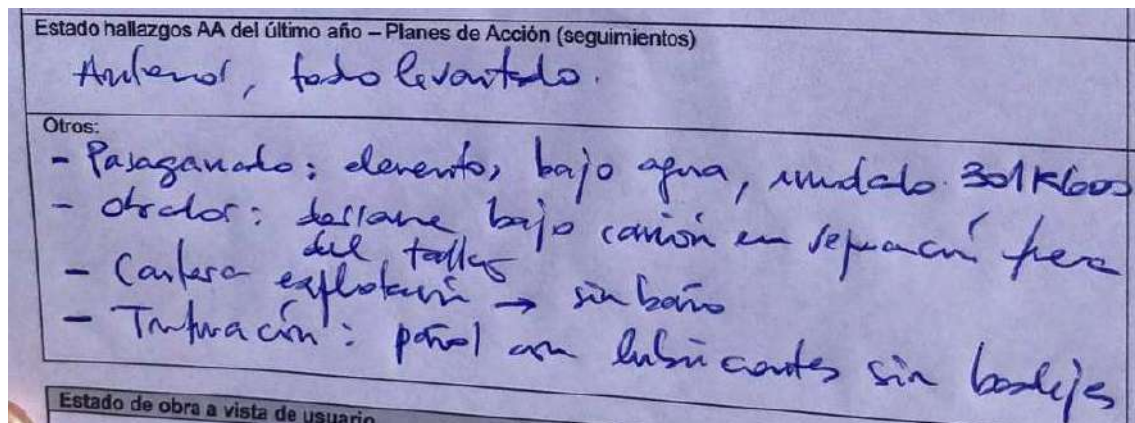 Estado hallazgos AA del último año – Planes de Acción (seguimientos)
Anterior, todo levantado.
Otros:
- Pasaganado: elementos bajo agua, 301K600
- obrador: derrame bajo camión en reparación fuera
del taller
- Cantera explotación → sin baño
- Trituración: pañol con lubricantes sin bandejas
Estado de obra a vista de usuario